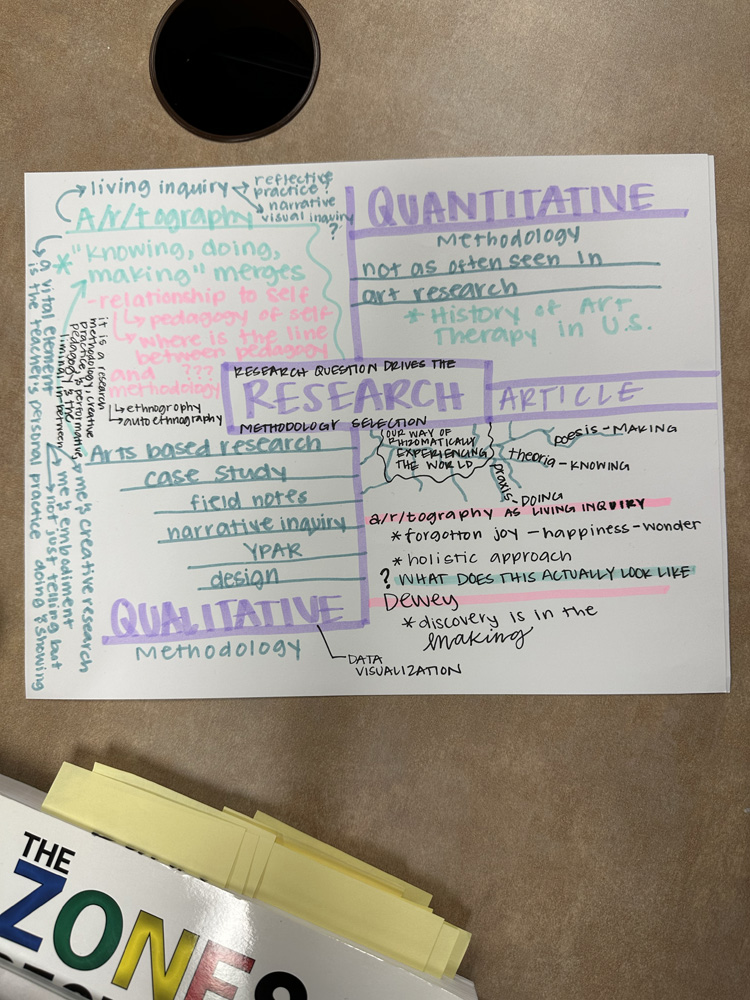 living inquiry
reflective
practice?
narrative
visual inquiry
?
A/r/tography
*"knowing, doing,
making" merges
-relationship to self
pedagogy of self
where is the line
between pedagogy
and ???
methodology
ethnography
autoethnography
it is a research
methodology, creative
practice, & performative
pedagogy in the
liminal in between
a vital element
is the teacher's personal practice
me's creative research
me's embodiment
not just telling but
doing & showing
QUANTITATIVE
Methodology
not as often seen in
art research
*History of Art
Therapy in U.S.
RESEARCH QUESTION DRIVES THE
RESEARCH
METHODOLOGY SELECTION
ARTICLE
Arts based research
case study
field notes
narrative inquiry
YPAR
design
QUALITATIVE
Methodology
DATA
VISUALIZATION
OUR WAY OF
RHIZOMATICALLY
EXPERIENCING
THE WORLD
poesis-MAKING
theoria-KNOWING
praxis-DOING
a/r/tography AS LIVING INQUIRY
*forgotton joy-happiness-wonder
*holistic approach
? WHAT DOES THIS ACTUALLY LOOK LIKE
Dewey
*discovery is in the
making
THE
ZONES